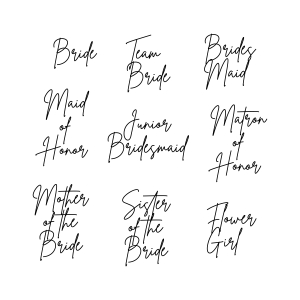 Bride
Team
Bride
Brides
Maid
Maid
of
Honor
Junior
Bridesmaid
Matron
of
Honor
Mother
of the
Bride
Sister
of the
Bride
Flower
Girl